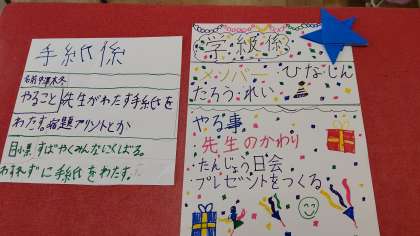 手紙係
名前
やること 先生がわたす手紙を
わたす。宿題プリントとか
目ひょう すばやくみんなにくばる。
わすれずに手紙をわたす。
学級係
メンバー ひな じん
たろう れい
やる事
先生のかわり
たんじょう日会
プレゼントをつくる